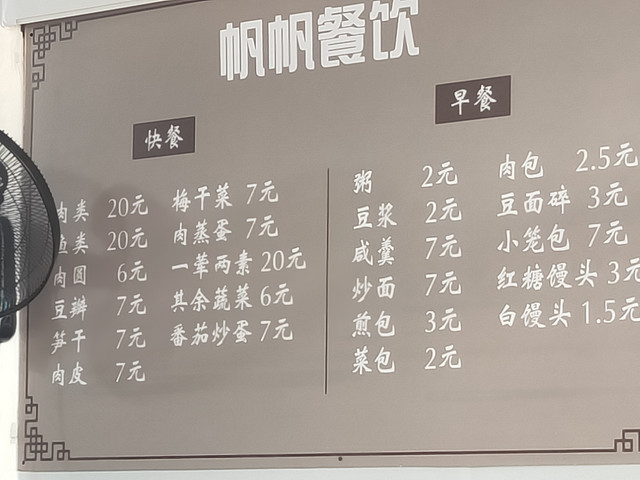 帆帆餐饮
快餐
肉类 20元
鱼类 20元
肉圆 6元
豆瓣 7元
笋干 7元
肉皮 7元
梅干菜 7元
肉蒸蛋 7元
一荤两素 20元
其余蔬菜 6元
番茄炒蛋 7元
早餐
粥 2元
豆浆 2元
咸羹 7元
炒面 7元
煎包 3元
菜包 2元
肉包 2.5元
豆面碎 3元
小笼包 7元
红糖馒头 3元
白馒头 1.5元